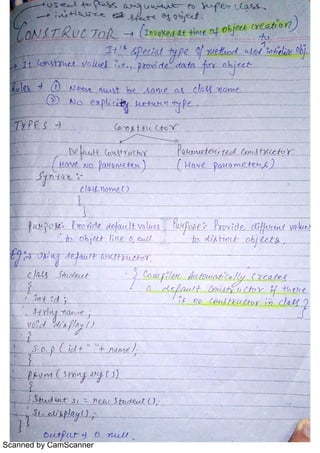 → used to pass argument to super class.
→ initiative of state of object.
CONSTRUCTOR → (Invokes at time of object creation)
It is special type of method used to initialise obj.
→ It construct values i.e., provide data for object.
Rules → ① Name must be same as class name
② No explicity return type.
TYPES → Constructor
Default Constructor Parameterized Constructor
(Have No Parameter) (Have parameters)
Syntax :-
class_name()
{
}
Purpose: Provide default values Purpose: Provide different values
to object like 0, null to distinct objects.
Eg:→ Using default constructor.
class Student { Compiler Automatically Creates
{ a default Constructor if there
int id; is no constructor in class }
String name;
void display()
{
S.o.p (id+" "+ name);
}
psvm (String arg[])
{
Student s1 = new Student();
s1.display();
}
}
Output → 0 null
Scanned by CamScanner